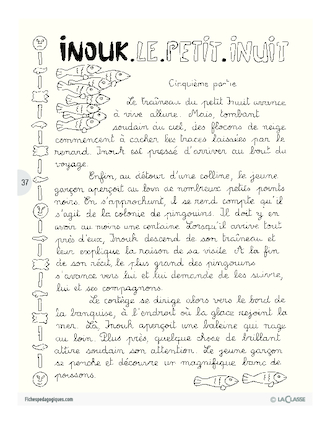 INOUK.LE.PETIT.INUIT
Cinquième partie
Le traîneau du petit Inuit avance
à vive allure. Mais, tombant
soudain du ciel, des flocons de neige
commencent à cacher les traces laissées par le
renard. Inouk est pressé d'arriver au bout du
voyage.
Enfin, au détour d'une colline, le jeune
garçon aperçoit au loin de nombreux petits points
noirs. En s'approchant, il se rend compte qu'il
s'agit de la colonie de pingouins. Il doit y en
avoir au moins une centaine. Lorsqu'il arrive tout
près d'eux, Inouk descend de son traîneau et
leur explique la raison de sa visite. A la fin
de son récit, le plus grand des pingouins
s'avance vers lui et lui demande de les suivre,
lui et ses compagnons.
Le cortège se dirige alors vers le bord de
la banquise, à l'endroit où la glace rejoint la
mer. Là, Inouk aperçoit une baleine qui nage
au loin. Plus près, quelque chose de brillant
attire soudain son attention. Le jeune garçon
se penche et découvre un magnifique banc de
poissons.
37
Fichespedagogiques.com
© LA CLASSE